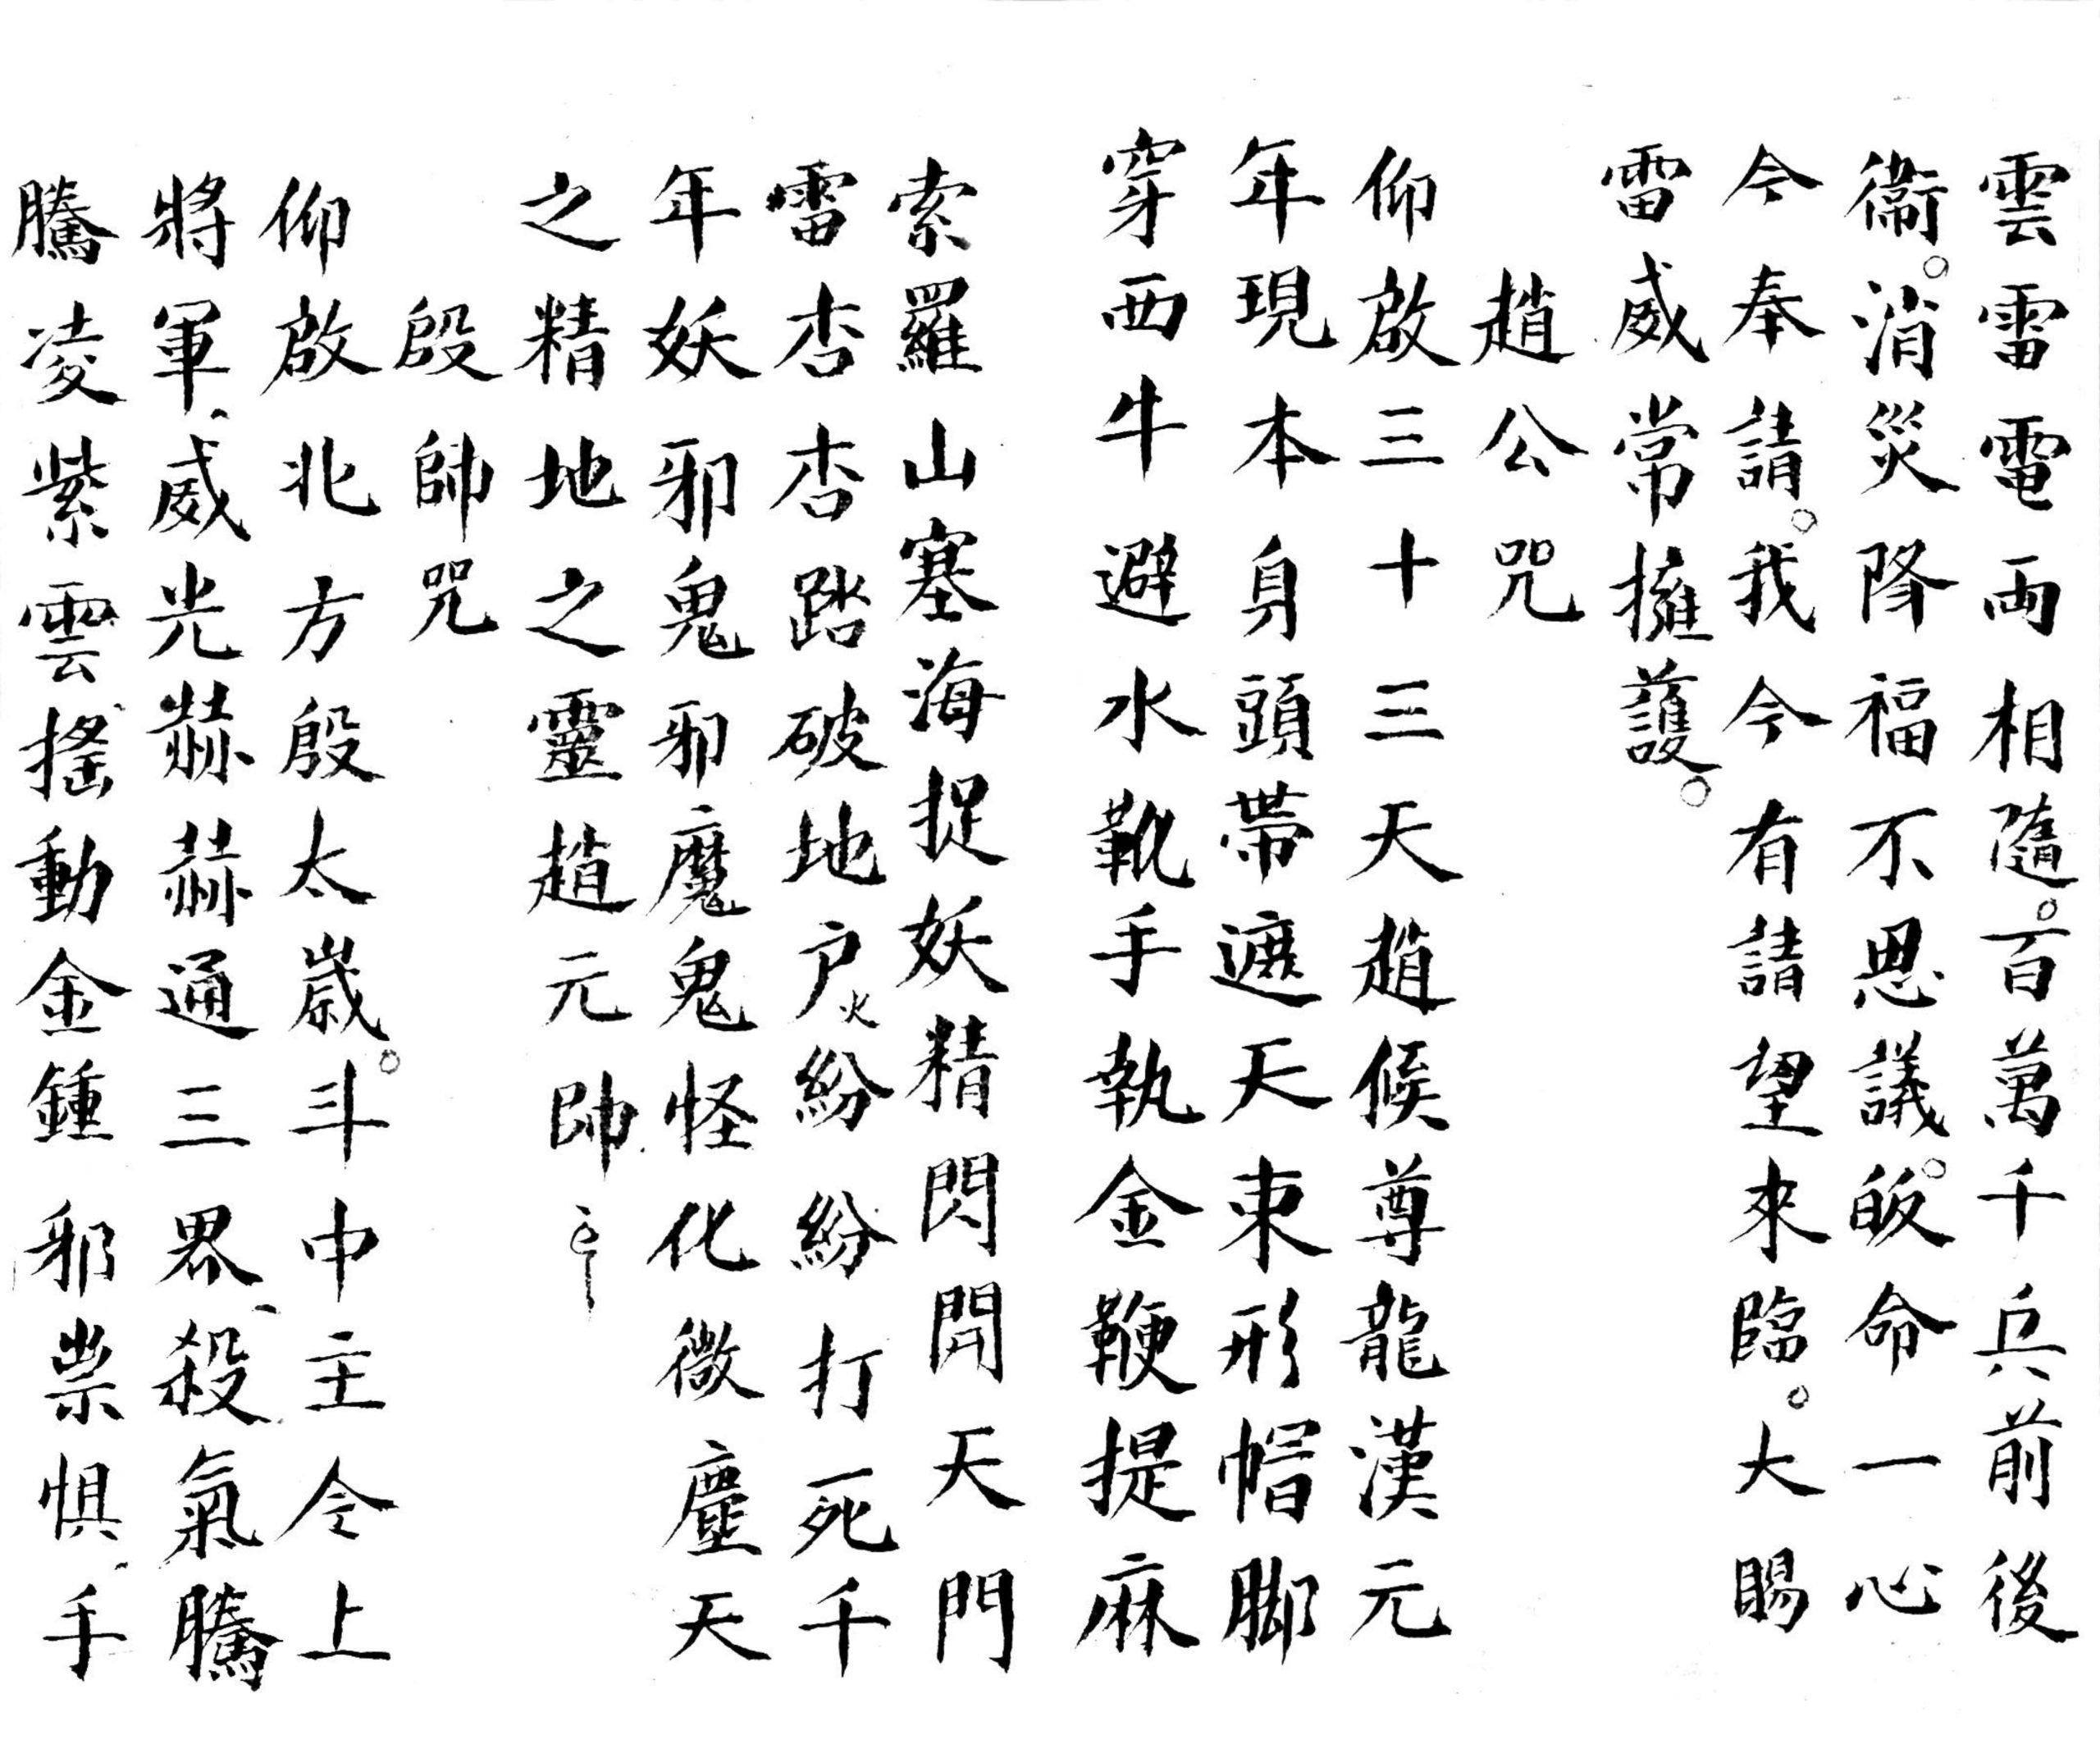 雲雷電両相隨。百萬千兵前後
衞。消災降福不思議。皈命一心
今奉請。我今有請望來臨。大賜
雷威常擁護。
趙公咒
仰啟三十三天趙候尊龍漢元
年現本身頭帶遮天束形帽脚
穿西牛避水靴手執金鞭提麻
索羅山塞海捉妖精閃開天門
雷杏杏踏破地户火紛紛打死千
年妖邪鬼邪魔鬼怪化微塵天
之精地之靈趙元帥
殷帥咒
仰啟北方殷太歲。斗中主令上
將軍、威光赫赫通三界、殺氣騰
騰凌紫雲、搖動金鍾邪祟惧、手